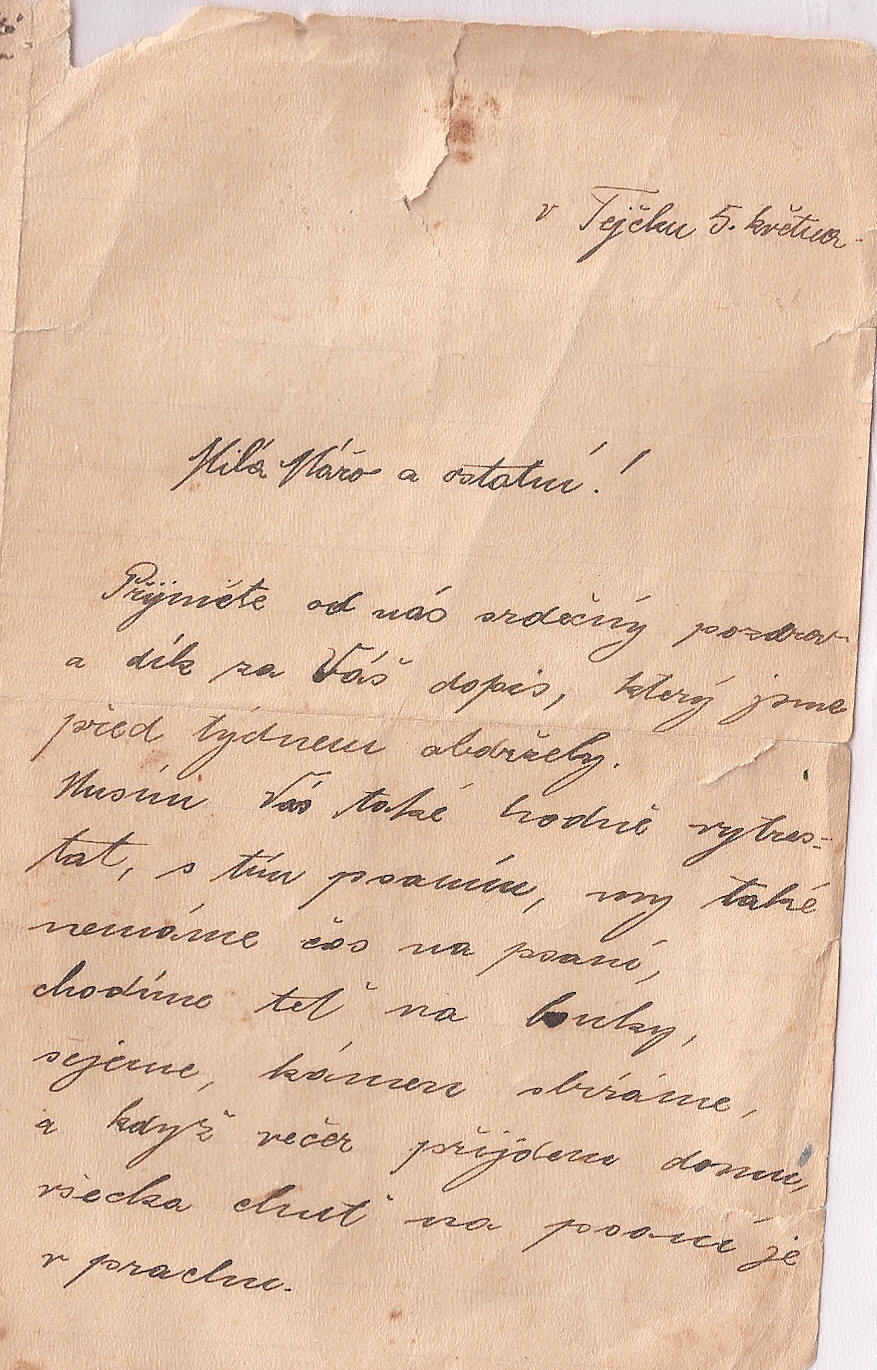 v Tejčku 5. května
Milá Máňo a ostatní!
Přijměte od nás srdečný pozdrav
a dík za Váš dopis, který jsme
před týdnem obdržely.
Musím Vás také hodně vytres-
tat, s tím psaním, my také
nemáme čas na psaní,
chodíme teď na louky,
sejeme, kámen sbíráme,
a když večer přijdem domu,
všecka chuť na psaní je
v prachu.